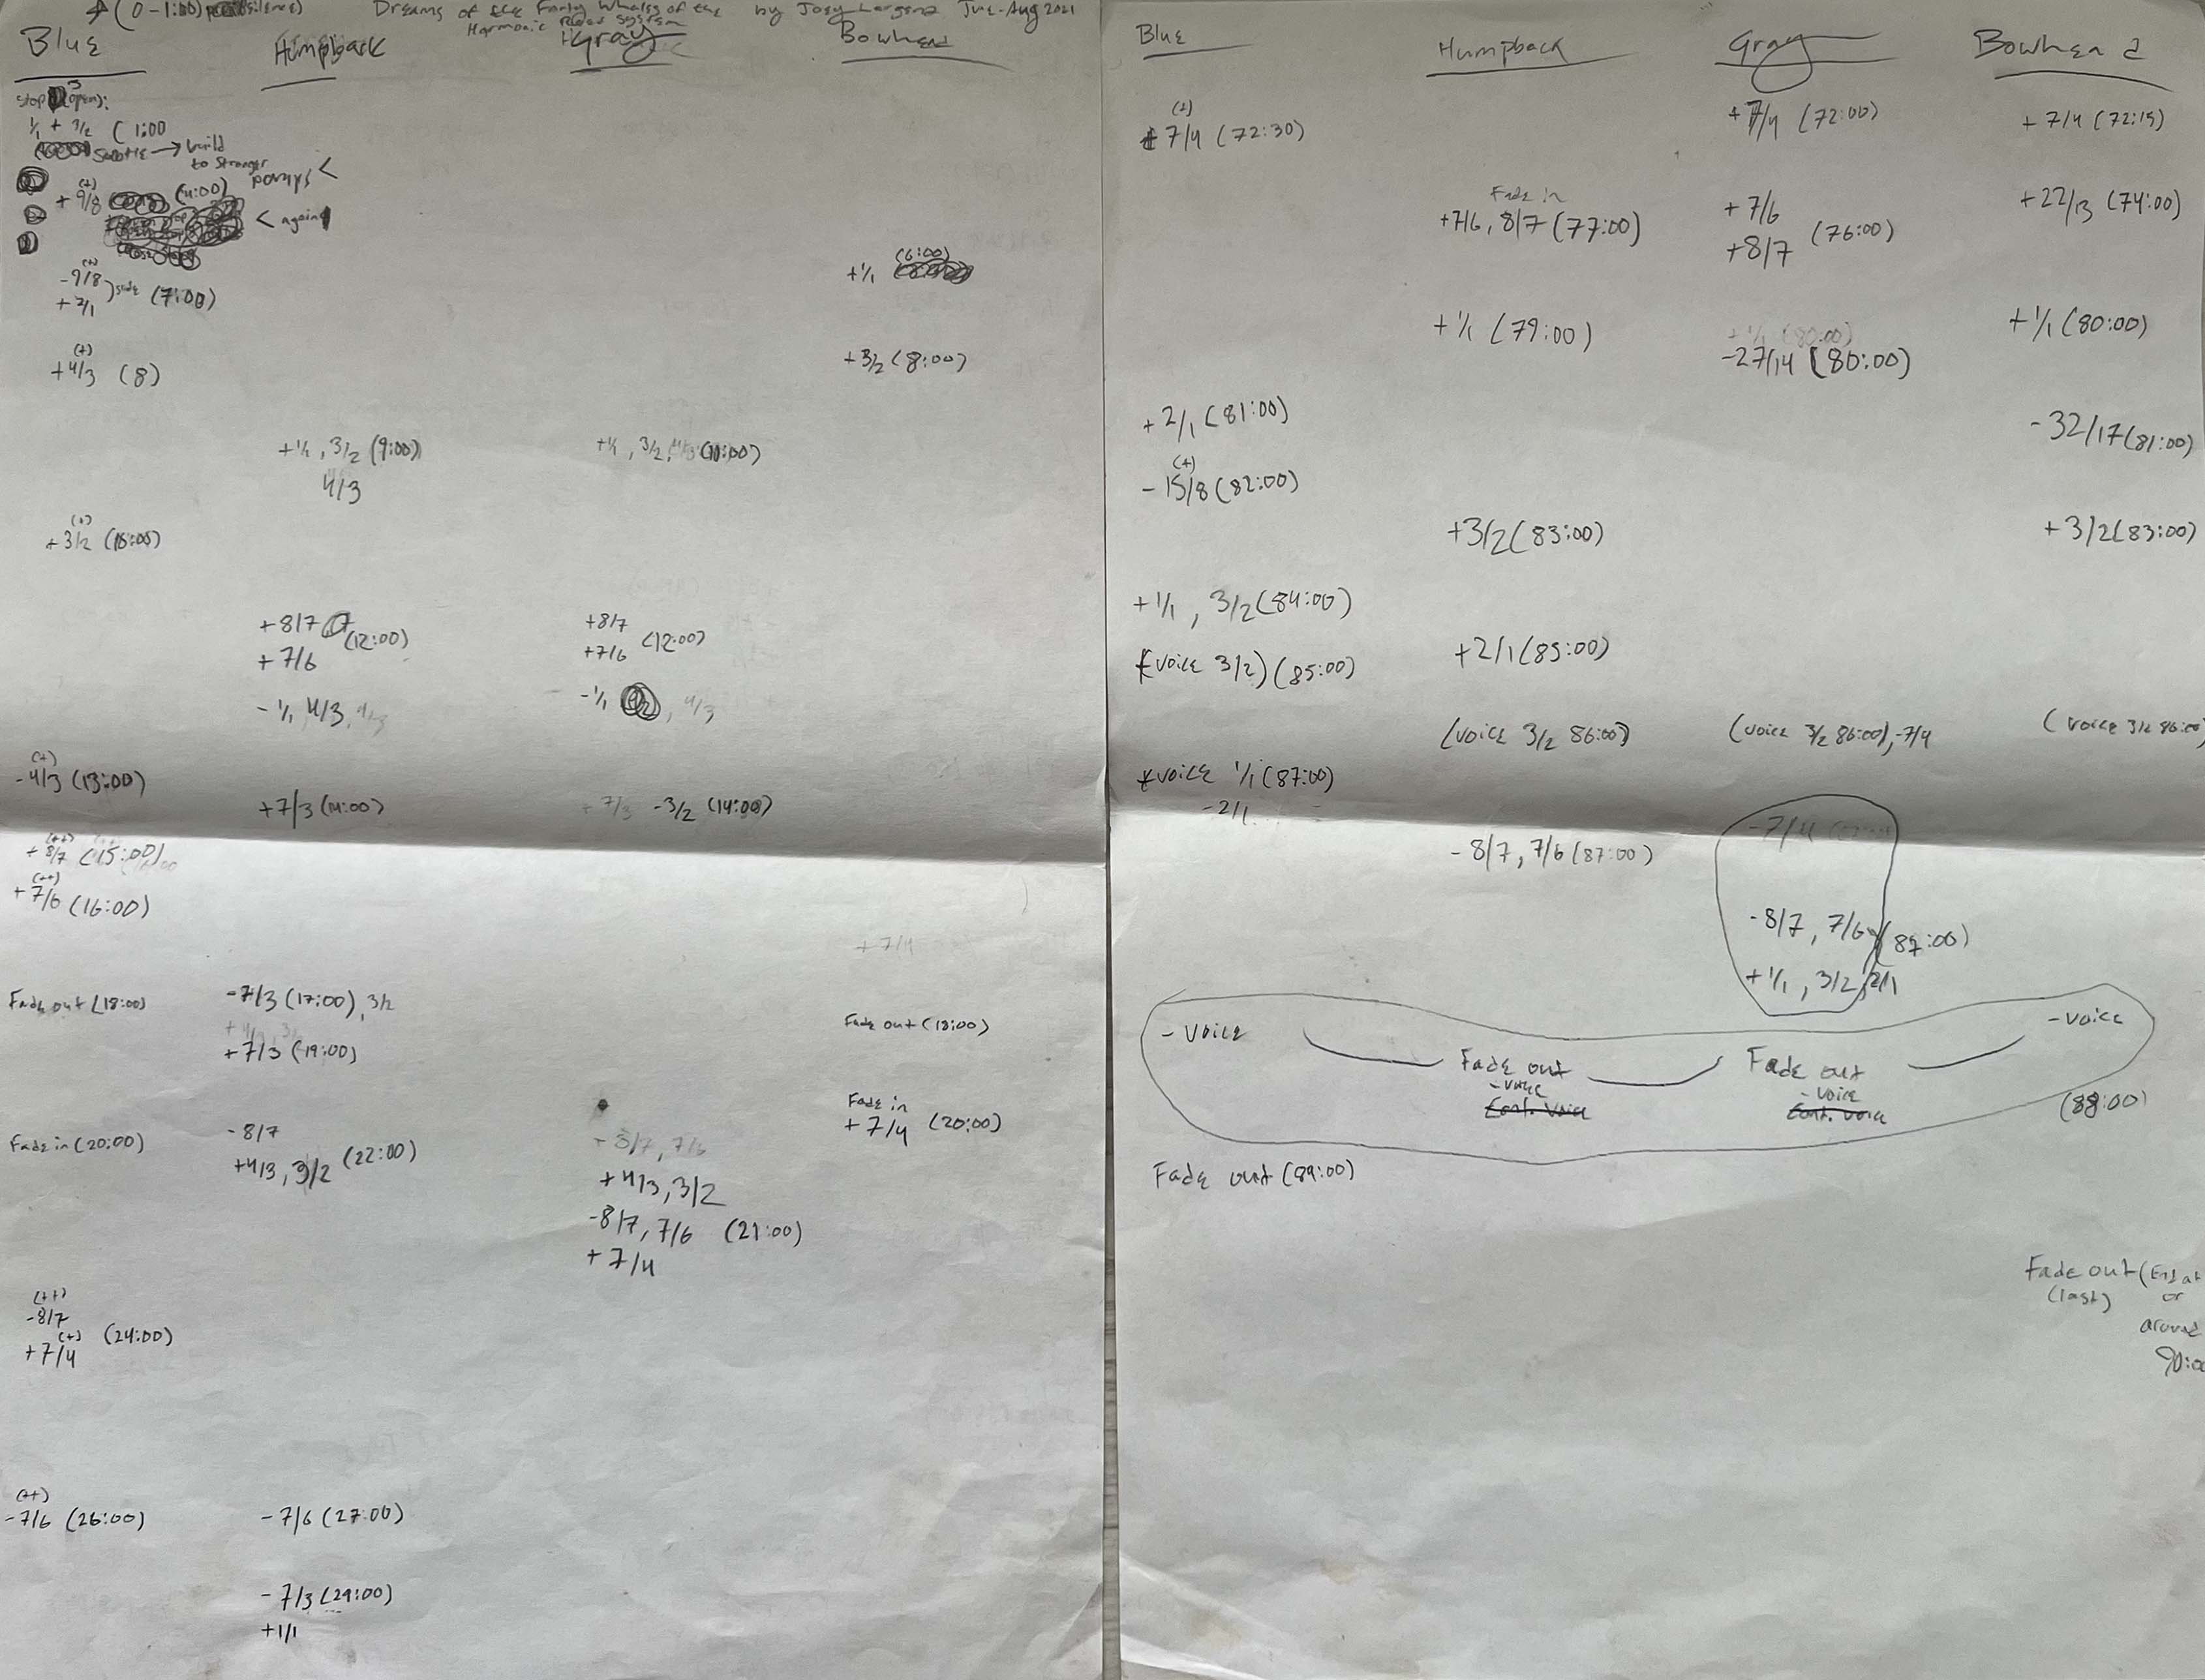 (0-1:00) silence) Dreams of the Early Whales of the by Joey Largent Jue-Aug 2021
Harmonic System
Blue Humpback Gray Bowhead
3
stop (open):
1/1 + 3/2 (1:00
subtle → build
to stronger
pomps <
(+)
+ 9/8 (4:00)
< again
(6:00)
+1/1
(+)
-9/8
+ 2/1 ) slide (7:00)
(+)
+4/3 (8)
+3/2 (8:00)
+1/1, 3/2 (9:00) +1/1, 3/2, 4/3 (10:00)
4/3
(+)
+3/2 (10:00)
+8/7 +8/7
(12:00) (12:00)
+7/6 +7/6
-1/1, 4/3, 4/3 -1/1, 4/3
(+)
-4/3 (13:00)
+7/3 (14:00) + 7/3 -3/2 (14:00)
(++)
+ 8/7 (15:00)
(++)
+ 7/6 (16:00)
+ 7/4
Fade out (18:00) -7/3 (17:00), 3/2
Fade out (18:00)
+7/3 (19:00)
Fade in
+ 7/4 (20:00)
Fade in (20:00) -8/7
+4/3, 3/2 (22:00)
+ 8/7, 7/6
+4/3, 3/2
-8/7, 7/6 (21:00)
+ 7/4
(++)
-8/7
(+)
+7/4 (24:00)
(++)
-7/6 (26:00) -7/6 (27:00)
-7/3 (29:00)
+1/1
Blue Humpback Gray Bowhead
(+)
+7/4 (72:30) +7/4 (72:00) + 7/4 (72:15)
Fade in
+7/6, 8/7 (77:00)
+7/6
+8/7 (76:00)
+22/13 (74:00)
+1/1 (79:00) +1/1 (80:00) +1/1 (80:00)
-27/14 (80:00)
+2/1 (81:00) -32/17 (81:00)
(+)
-15/8 (82:00)
+3/2 (83:00) +3/2 (83:00)
+1/1, 3/2 (84:00)
(voice 3/2) (85:00) +2/1 (85:00)
(voice 3/2 86:00) (voice 3/2 86:00), -7/4 (voice 3/2 86:00
voice 1/1 (87:00)
-2/1
-7/4
-8/7, 7/6 (87:00)
-8/7, 7/6 (87:00)
+1/1, 3/2, 2/1
-voice -voice
Fade out Fade out
-voice -voice
Cont. voice Cont. voice
(88:00)
Fade out (89:00)
Fade out (End at
(last) or
around
90:00